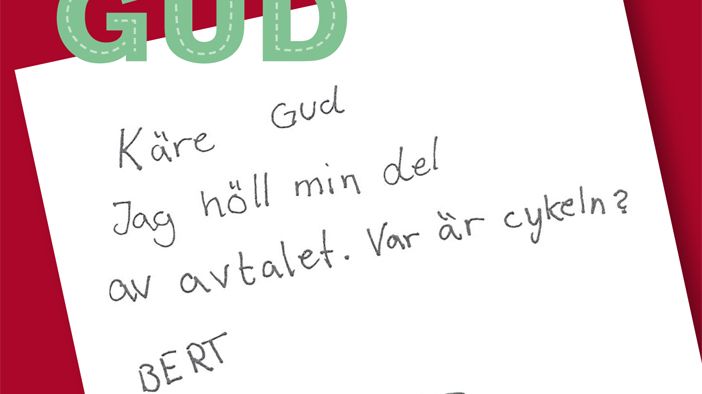 GUD
Käre Gud
Jag höll min del
av avtalet. Var är cykeln?
BERT